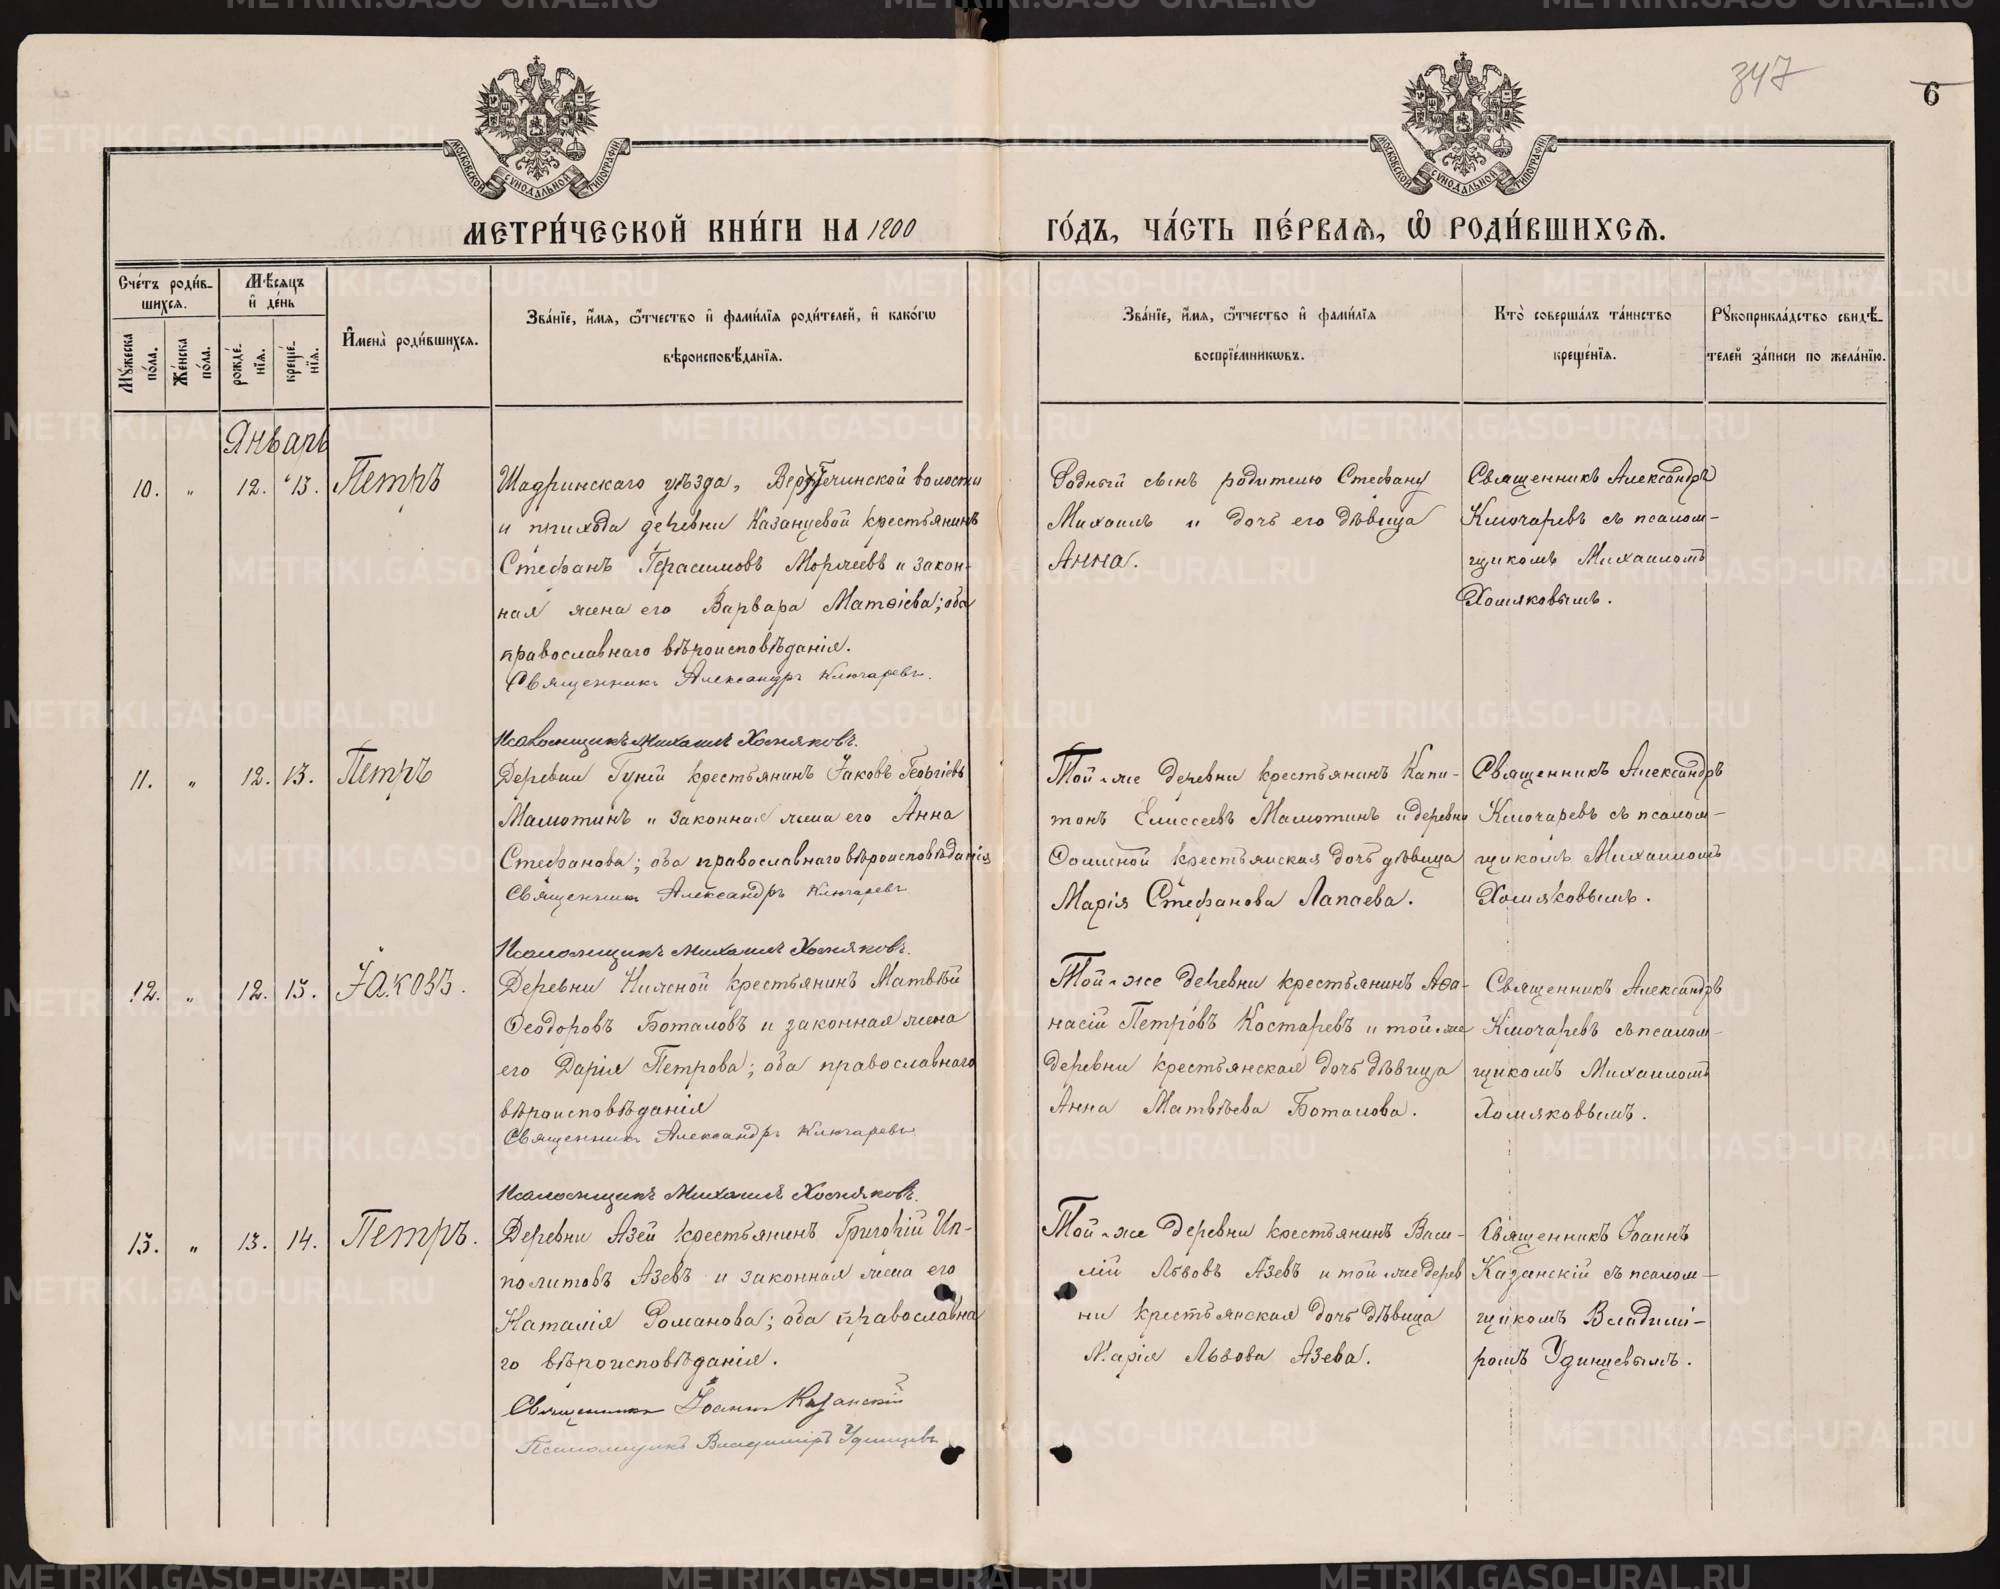 347
6
МОСКОВСКОЙ СѴНОДАЛЬНОЙ ТИПОГРАФІИ
МОСКОВСКОЙ СѴНОДАЛЬНОЙ ТИПОГРАФІИ
МЕТРИ́ЧЕСКОЙ КНИ́ГИ НА 1900
ГО́ДЪ, ЧА́СТЬ ПЕ́РВАѦ, Ѽ РОДИ́ВШИХСѦ.
Сче́тъ роди́в-
шихсѧ.
Мѣ́сѧцъ
и҆ де́нь
Мꙋ́жеска
по́ла.
Же́нска
по́ла.
рожде́-
нїѧ.
креще́-
нїѧ.
И҆мена̀ роди́вшихсѧ.
Зва́нїе, и҆́мѧ, ѻ҆́тчество и҆ фами́лїѧ роди́телей, и҆ како́гѡ
вѣроисповѣ́данїѧ.
Зва́нїе, и҆́мѧ, ѻ҆́тчество и҆ фами́лїѧ
воспрїе́мникѡвъ.
Кто̀ соверша́лъ та́инство
креще́нїѧ.
Рꙋкоприкла́дство свидѣ́-
телей за́писи по жела́нїю.
Январь
10. „ 12. 13. Петръ
Шадринскаго уѣзда, Верхтечинской волости
и прихода деревни Казанцевой крестьянинъ
Стефанъ Герасимовъ и закон-
ная жена его Варвара Матѳіева; оба
православнаго вѣроисповѣданія.
Священникъ Александръ Ключаревъ.
Псаломщикъ Михаилъ Хомяковъ.
Родный сынъ родителю Стефану
Михаилъ и дочь его дѣвица
Анна.
Священникъ Александръ
Ключаревъ съ псалом-
щикомъ Михаиломъ
Хомяковымъ.
11. „ 12. 13. Петръ
Деревни Гуней крестьянинъ Іаковъ Георгіевъ
Мамотинъ и законная жена его Анна
Стефанова; оба православнаго вѣроисповѣданія
Священникъ Александръ Ключаревъ
Псаломщикъ Михаилъ Хомяковъ.
Той-же деревни крестьянинъ Капи-
тонъ Елисеевъ Мамотинъ и деревни
крестьянская дочь дѣвица
Марія Стефанова Лапаева.
Священникъ Александръ
Ключаревъ съ псалом-
щикомъ Михаиломъ
Хомяковымъ.
12. „ 12. 13. Іаковъ.
Деревни Нижной крестьянинъ Матвѣй
Ѳеодоровъ Боталовъ и законная жена
его Дарія Петрова; оба православнаго
вѣроисповѣданія
Священникъ Александръ Ключаревъ
Псаломщикъ Михаилъ Хомяковъ.
Той-же деревни крестьянинъ Аѳа-
насій Петровъ Костаревъ и той-же
деревни крестьянская дочь дѣвица
Анна Матвѣева Боталова.
Священникъ Александръ
Ключаревъ съ псалом-
щикомъ Михаиломъ
Хомяковымъ.
13. „ 13. 14. Петръ.
Деревни Азей крестьянинъ Григорій Ип-
политовъ Азевъ и законная жена его
Наталія Романова; оба православна
го вѣроисповѣданія.
Священникъ Іоаннъ Казанскій
Псаломщикъ Владиміръ Удинцевъ
Той-же деревни крестьянинъ Васи-
лій Львовъ Азевъ и той-же дерев
ни крестьянская дочь дѣвица
Марія Львова Азева.
Священникъ Іоаннъ
Казанскій съ псалом-
щикомъ Владимі-
ромъ Удинцевымъ.
METRIKI.GASO-URAL.RU